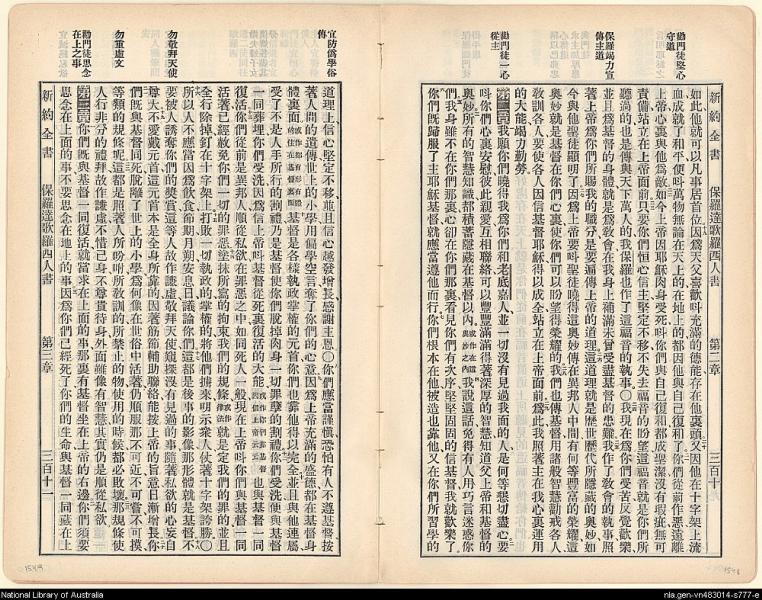 勸門徒堅心守道
保羅竭力宣傳主道
勸門徒一心從主
新約全書 保羅達歌羅西人書 第二章 三百十
如此他就可以凡事居首位因爲天父喜歡叫充滿的德能存在他裏頭又因他在十字架上流
血成就了和平便叫萬物無論在天上的在地上的都因他與自己復和了你們從前作惡遠離
上帝心裏與他爲敵如今上帝因耶穌肉身受死叫你們與自己復和都成聖潔沒有瑕疵無可
責備站立在上帝面前只要你們恒心信主堅定不移不失去福音的盼望這福音就是你們所
聽過的也是傳與天下萬人的我保羅也作了這福音的執事〇我現在爲你們受苦反覺歡樂
並且爲基督的身體就是爲教會在我身上補滿未曾受盡基督的患難我作了教會的執事照
著上帝爲你們所賜我的職分是要遍傳上帝的道理這道理就是歷世歷代所隱藏的奧妙如
今與他聖徒顯明了因爲上帝要叫聖徒曉得這奧妙傳在異邦人中間有何等豐富的榮耀這
奧妙就是基督在你們心裏使你們可以盼望得榮耀的我們也傳基督用諸般智慧勸戒各人
敎訓各人要使各人因信基督耶穌得以成全站立在上帝面前爲此我照著主在我心裏運用
的大能竭力勤勞
第二章我願你們曉得我爲你們和老底嘉人並一切沒有見過我面的人是何等懸切盡心要
叫你們心裏安慰彼此親愛互相聯絡可以豐豐滿滿得著深厚的智慧知道父上帝和基督的
奧妙所有的智慧知識都積蓄隱藏在基督以內我說這話免得有人用巧言迷惑你
們我身雖不在你們那裏心卻在你們那裏看見你們有次序堅堅固固的信基督我就歡樂了
你們既歸服了主耶穌基督就應當遵他而行你們根本在他被造也靠他又在你們所習學的
宜防僞學俗傳
勿敬拜天使
勿重虛文
勸門徒思念在上之事
道理上信心堅定不移並且信心越發增長感謝主恩〇你們應當謹愼恐怕有人不遵基督按
著人間的遺傳世上的小學用偏學空言奪了你們的心意因爲上帝充滿的盛德都在基督身
體裏面基督是各樣執政掌權的元首你們也靠他得以完全並且與他連屬
受了不是人手所行的割禮乃是基督使你們脫掉肉身一切罪孽的割禮你們受洗便與基督
一同葬埋你們受洗因爲信上帝叫基督從死裏復活的大能也與基督一同
復活你們從前是異邦人順從私欲在罪惡之中如同死人一般現在上帝叫你們與基督一同
活著已經赦免你們一切的罪惡塗抹所寫的拘束我們的規條就是定我們的罪的並且
全行除掉釘在十字架上打敗一切執政的掌權的將他們擄來明示衆人仗著十字架誇勝〇
所以人不應當因爲飲食節期月朔安息日議論你們這都是後事的影像那形體就是基督不
要被人誘奪你們的便失賞這等人故作謙虛敬拜天使窺探沒有見過的事隨著私欲的心妄自
尊大不愛戴元首這元首本是全身所靠的因著筋節輔助聯絡能按上帝的旨意日漸增長你
們既與基督同死脫離了世上的小學爲何像在世俗中活著仍順服那不可近不可嘗不可摸
等類的規條呢這都是照著人所吩咐所敎訓的所禁止的物使用的時候都必敗壞那規條使
人行非分的禮拜故作謙虛不惜己身不尊貴待身外面雖像有智慧其實仍是順從私欲
第三章你們既與基督一同復活就當求在上面的事那裏有基督坐在上帝的右邊你們須要
思念在上面的事不要思念在地上的事因爲你們已經死了你們的生命與基督一同藏在上
新約全書 保羅達歌羅西人書 第三章 三百十一
National Library of Australia
nla.gen-vn483014-s777-e